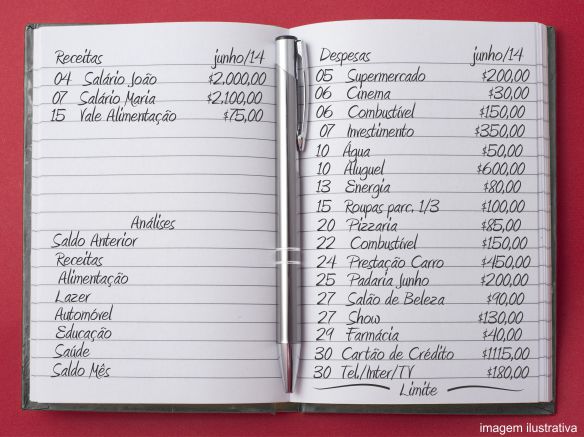 Receitas junho/14
04 Salário João $2.000,00
07 Salário Maria $2,100,00
15 Vale Alimentação $75,00
Análises
Saldo Anterior
Receitas
Alimentação
Lazer
Automóvel
Educação
Saúde
Saldo Mês
Despesas junho/14
05 Supermercado $200,00
06 Cinema $30,00
06 Combustível $150,00
07 Investimento $350,00
10 Água $50,00
10 Aluguel $600,00
13 Energia $80,00
15 Roupas parc. 1/3 $100,00
20 Pizzaria $85,00
22 Combustível $150,00
24 Prestação Carro $450,00
25 Padaria Junho $200,00
27 Salão de Beleza $90,00
27 Show $130,00
29 Farmácia $40,00
30 Cartão de Crédito $1115,00
30 Tel./Inter/TV $180,00
Limite
imagem ilustrativa